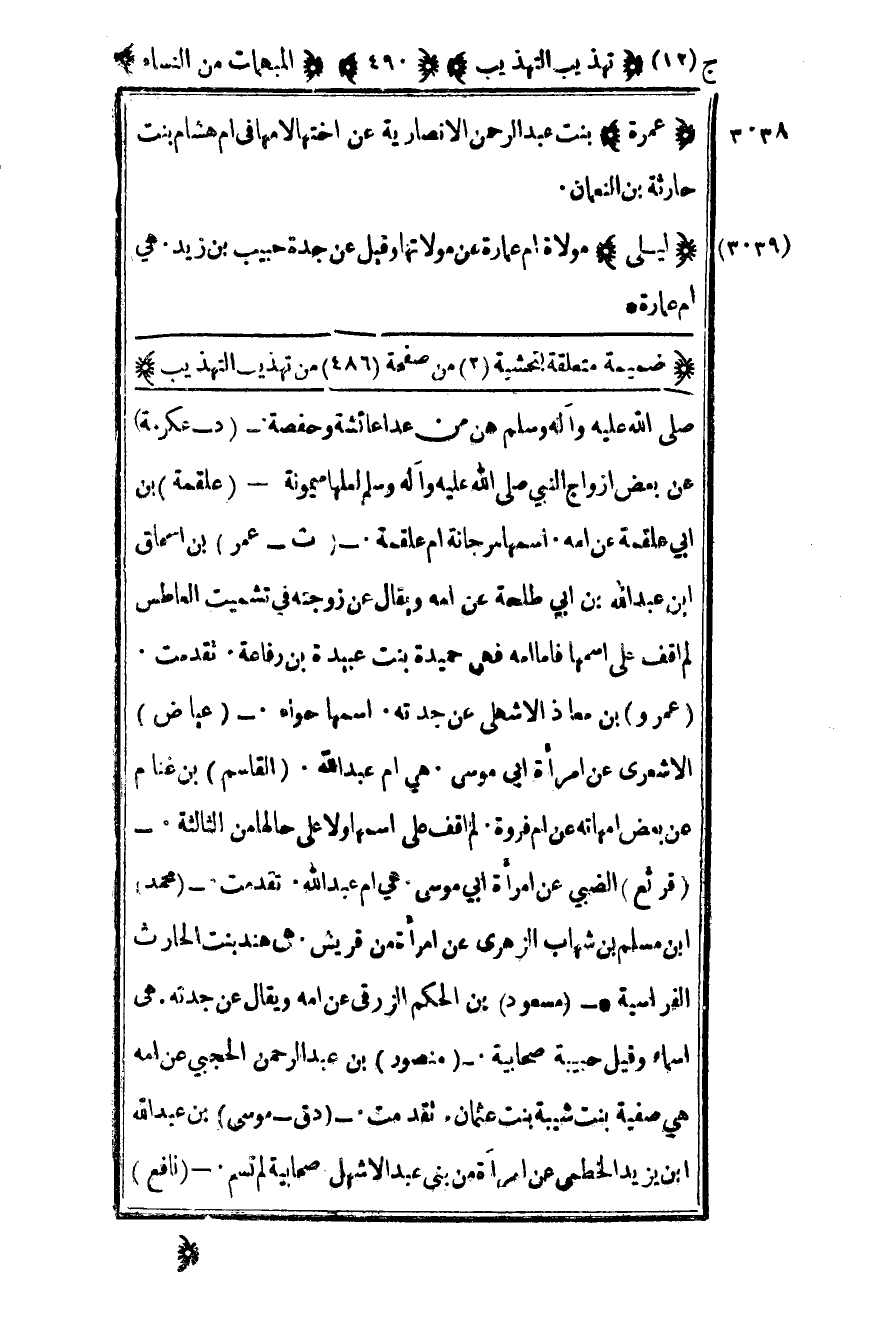 ج (١٢) ﴿ تهذيب التهذيب ﴾ ﴿ ٤٩٠ ﴾ ﴿ المبهمات من النساء ﴾
٣٠٣٨ ﴿ عمرة ﴾ بنت عبدالرحمن الانصارية عن اختها لامها فى ام هشام بنت
حارثة بن النعمان ٠
(٣٠٣٩) ﴿ ليلى ﴾ مولاة ام عمارة عن مولاتها وقيل عن جدة حبيب بن زيد ٠ هي
ام عمارة •
﴿ ضميمة متعلقة لتحشية (٢) من صفحة (٤٨٦) من تهذيب التهذيب ﴾
صلى الله عليه وآله وسلم هن من عدا عائشة وحفصة ٠ـ (د ـ عكرمة)
عن بعض ازواج النبي صلى الله عليه وآله وسلم لعلها ميمونة — (علقمة) بن
ابي علقمة عن امه ٠ اسمها مرجانة ام علقمة ٠ـ (ت ـ عمر) بن اسحاق
ابن عبدالله بن ابي طلحة عن امه ويقال عن زوجته في تشميت العاطس
لم اقف على اسمها فاما امه فهي حميدة بنت عبيدة بن رفاعة ٠ تقدمت ٠
(عمرو) بن معاذ الاشهلى عن جدته ٠ اسمها حواء ٠ـ (عياض)
الاشعرى عن امرأة ابي موسى ٠ هي ام عبدالله ٠ (القاسم) بن غنام
عن بعض امهاته عن ام فروة ٠ لم اقف على اسمها ولا على حالها من الثالثة ٠ـ
(قرثع) الضبي عن امرأة ابي موسى ٠ هي ام عبدالله ٠ تقدمت ٠ـ (محمد)
ابن مسلم بن شهاب الزهرى عن امرأة من قريش ٠ هى هند بنت الحارث
الفراسية •ـ (مسعود) بن الحكم الزرقى عن امه ويقال عن جدته ٠ هى
اسماء وقيل حبيبة صحابية ٠ـ (منصور) بن عبدالرحمن الحجبي عن امه
هي صفية بنت شيبة بنت عثمان ٠ تقدمت ٠ـ (دق ـ موسى) بن عبدالله
ابن يزيد الخطمى عن امرأة من بنى عبد الاشهل صحابية لم تسم ٠ — (نافع)